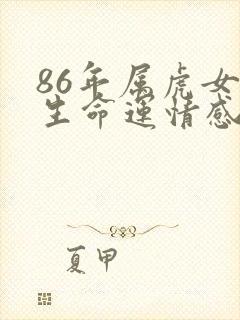 86年属虎女
生命运情感
夏甲